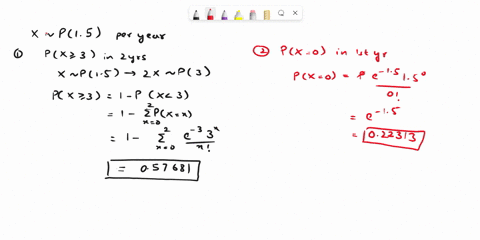 X ~ P(1.5) per year
① P(X≥3) in 2yrs
X ~ P(1.5) → 2X ~ P(3)
P(X≥3) = 1 - P(X<3)
= 1 - Σ_{x=0}^{2} P(X=x)
= 1 - Σ_{x=0}^{2} e^{-3} 3^x / x!
1 = 0.57681
② P(X=0) in 1st yr
P(X=0) = P e^{-1.5} 1.5^0 / 0!
= e^{-1.5}
= 0.22313